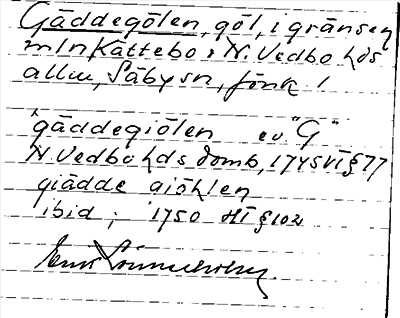 Gäddegölen, göl, i gränsen
mln Kättebo o N. Vedbo hds
allm, Säbysn, Jönk l
gäddegiölen ev. "G"
N. Vedbo hds domb, 1745 VT § 77
giädde giöhlen
ibid; 1750 HT § 102
Erik